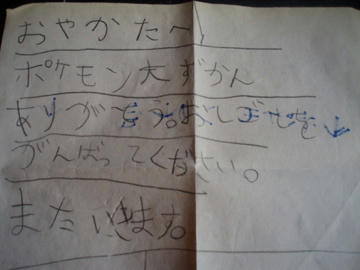 おやかたへ
ポケモン大ずかん
ありがとう。おしごとを
がんばってください。
またいきます。